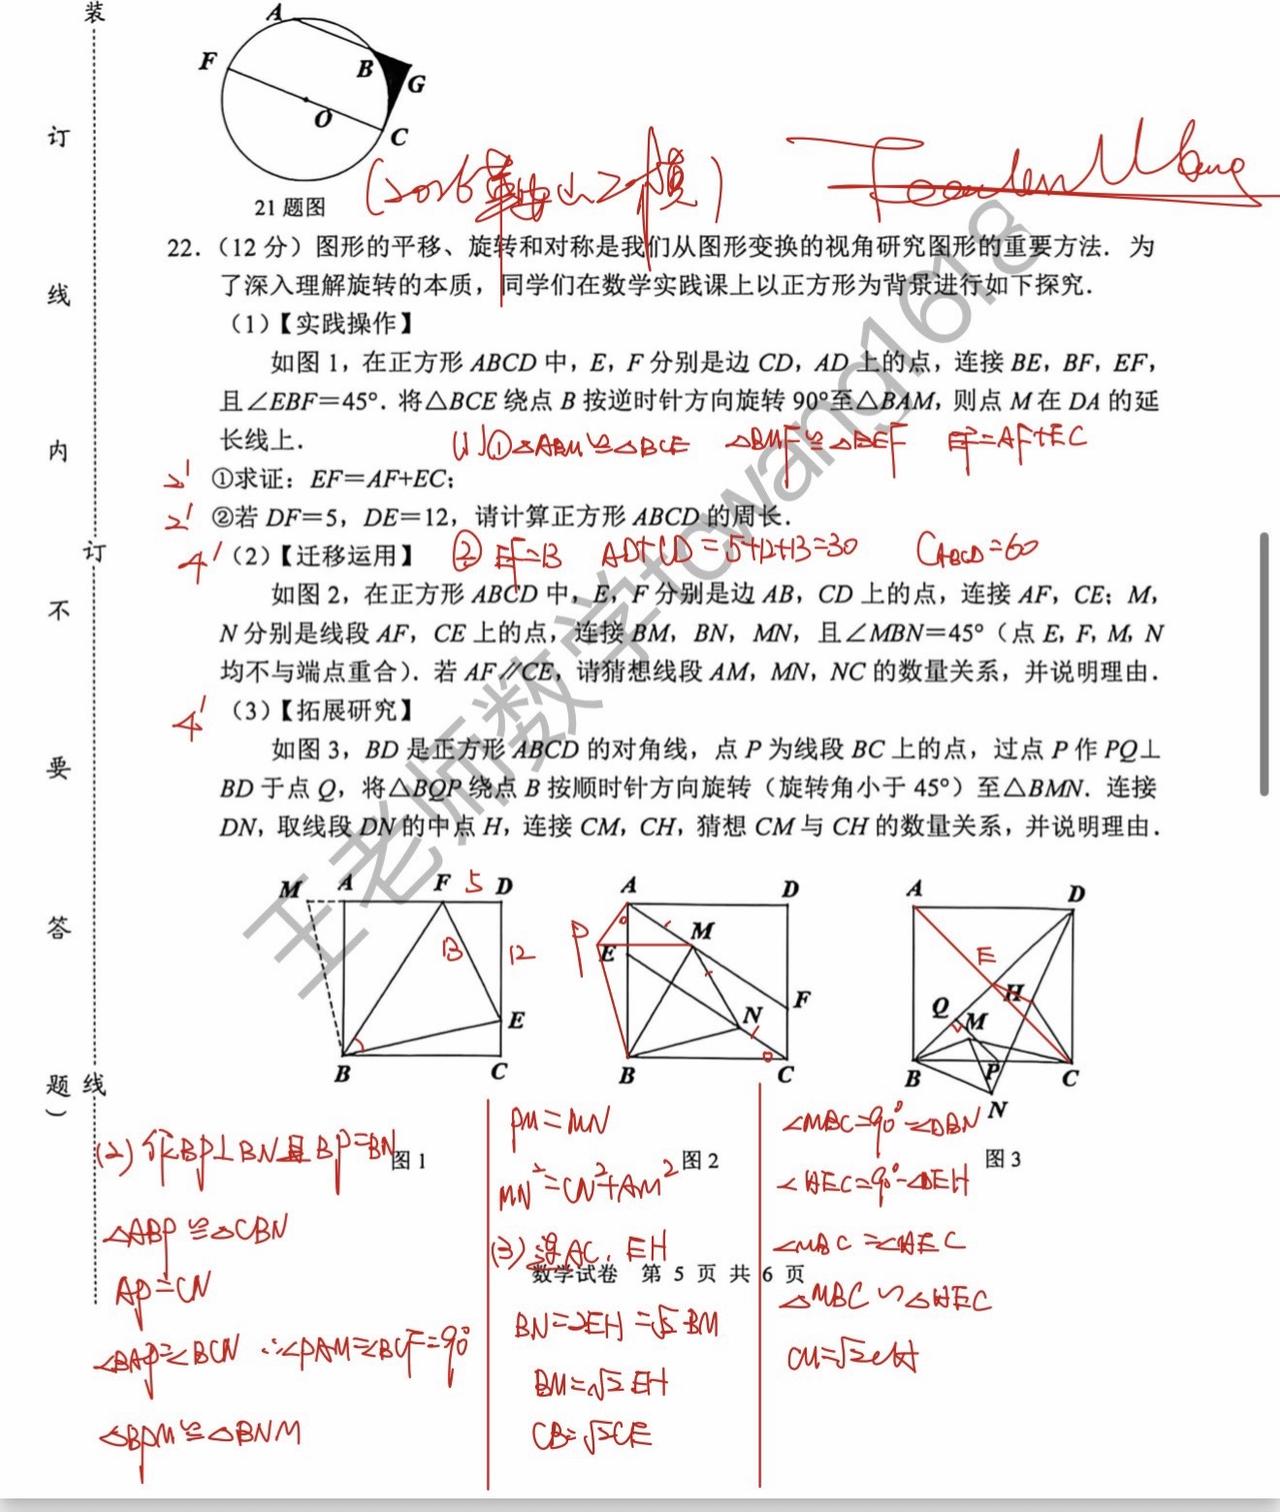 装
订
线
内
订
不
要
答
题
线
)
A
F
B
G
O
C
21题图
(2026鞍山2模)
22.(12分)图形的平移、旋转和对称是我们从图形变换的视角研究图形的重要方法．为
了深入理解旋转的本质，同学们在数学实践课上以正方形为背景进行如下探究．
(1)【实践操作】
如图1，在正方形ABCD中，E，F分别是边CD，AD上的点，连接BE，BF，EF，
且∠EBF=45°．将△BCE绕点B按逆时针方向旋转90°至△BAM，则点M在DA的延
长线上．
(1)①△ABM≌△BCE △BMF≌△BEF EF=AF+EC
2' ①求证：EF=AF+EC；
2' ②若DF=5，DE=12，请计算正方形ABCD的周长．
4' (2)【迁移运用】
② EF=13 AD+CD=5+12+13=30 CABCD=60
如图2，在正方形ABCD中，E，F分别是边AB，CD上的点，连接AF，CE；M，
N分别是线段AF，CE上的点，连接BM，BN，MN，且∠MBN=45°（点E，F，M，N
均不与端点重合）．若AF∥CE，请猜想线段AM，MN，NC的数量关系，并说明理由．
4' (3)【拓展研究】
如图3，BD是正方形ABCD的对角线，点P为线段BC上的点，过点P作PQ⊥
BD于点Q，将△BQP绕点B按顺时针方向旋转（旋转角小于45°）至△BMN．连接
DN，取线段DN的中点H，连接CM，CH，猜想CM与CH的数量关系，并说明理由．
M A F 5 D
13 12
E
B C
图1
A D
P E M
F
N
B C
图2
A D
E
H
Q M
B P C
N
图3
(2) 作BP⊥BN且BP=BN
△ABP≌△CBN
AP=CN
∠BAP=∠BCN ∴∠PAM=∠BCF=90°
△BPM≌△BNM
PM=MN
MN²=CN²+AM²
(3)连AC、EH
BN=2EH=√2BM
BM=√2EH
CB=√2CE
∠MBC=90°-∠DBN
∠HEC=90°-∠DEH
∠MBC=∠HEC
△MBC∽△HEC
CM=√2CH
数学试卷 第5页共6页
王老师数学towang1618